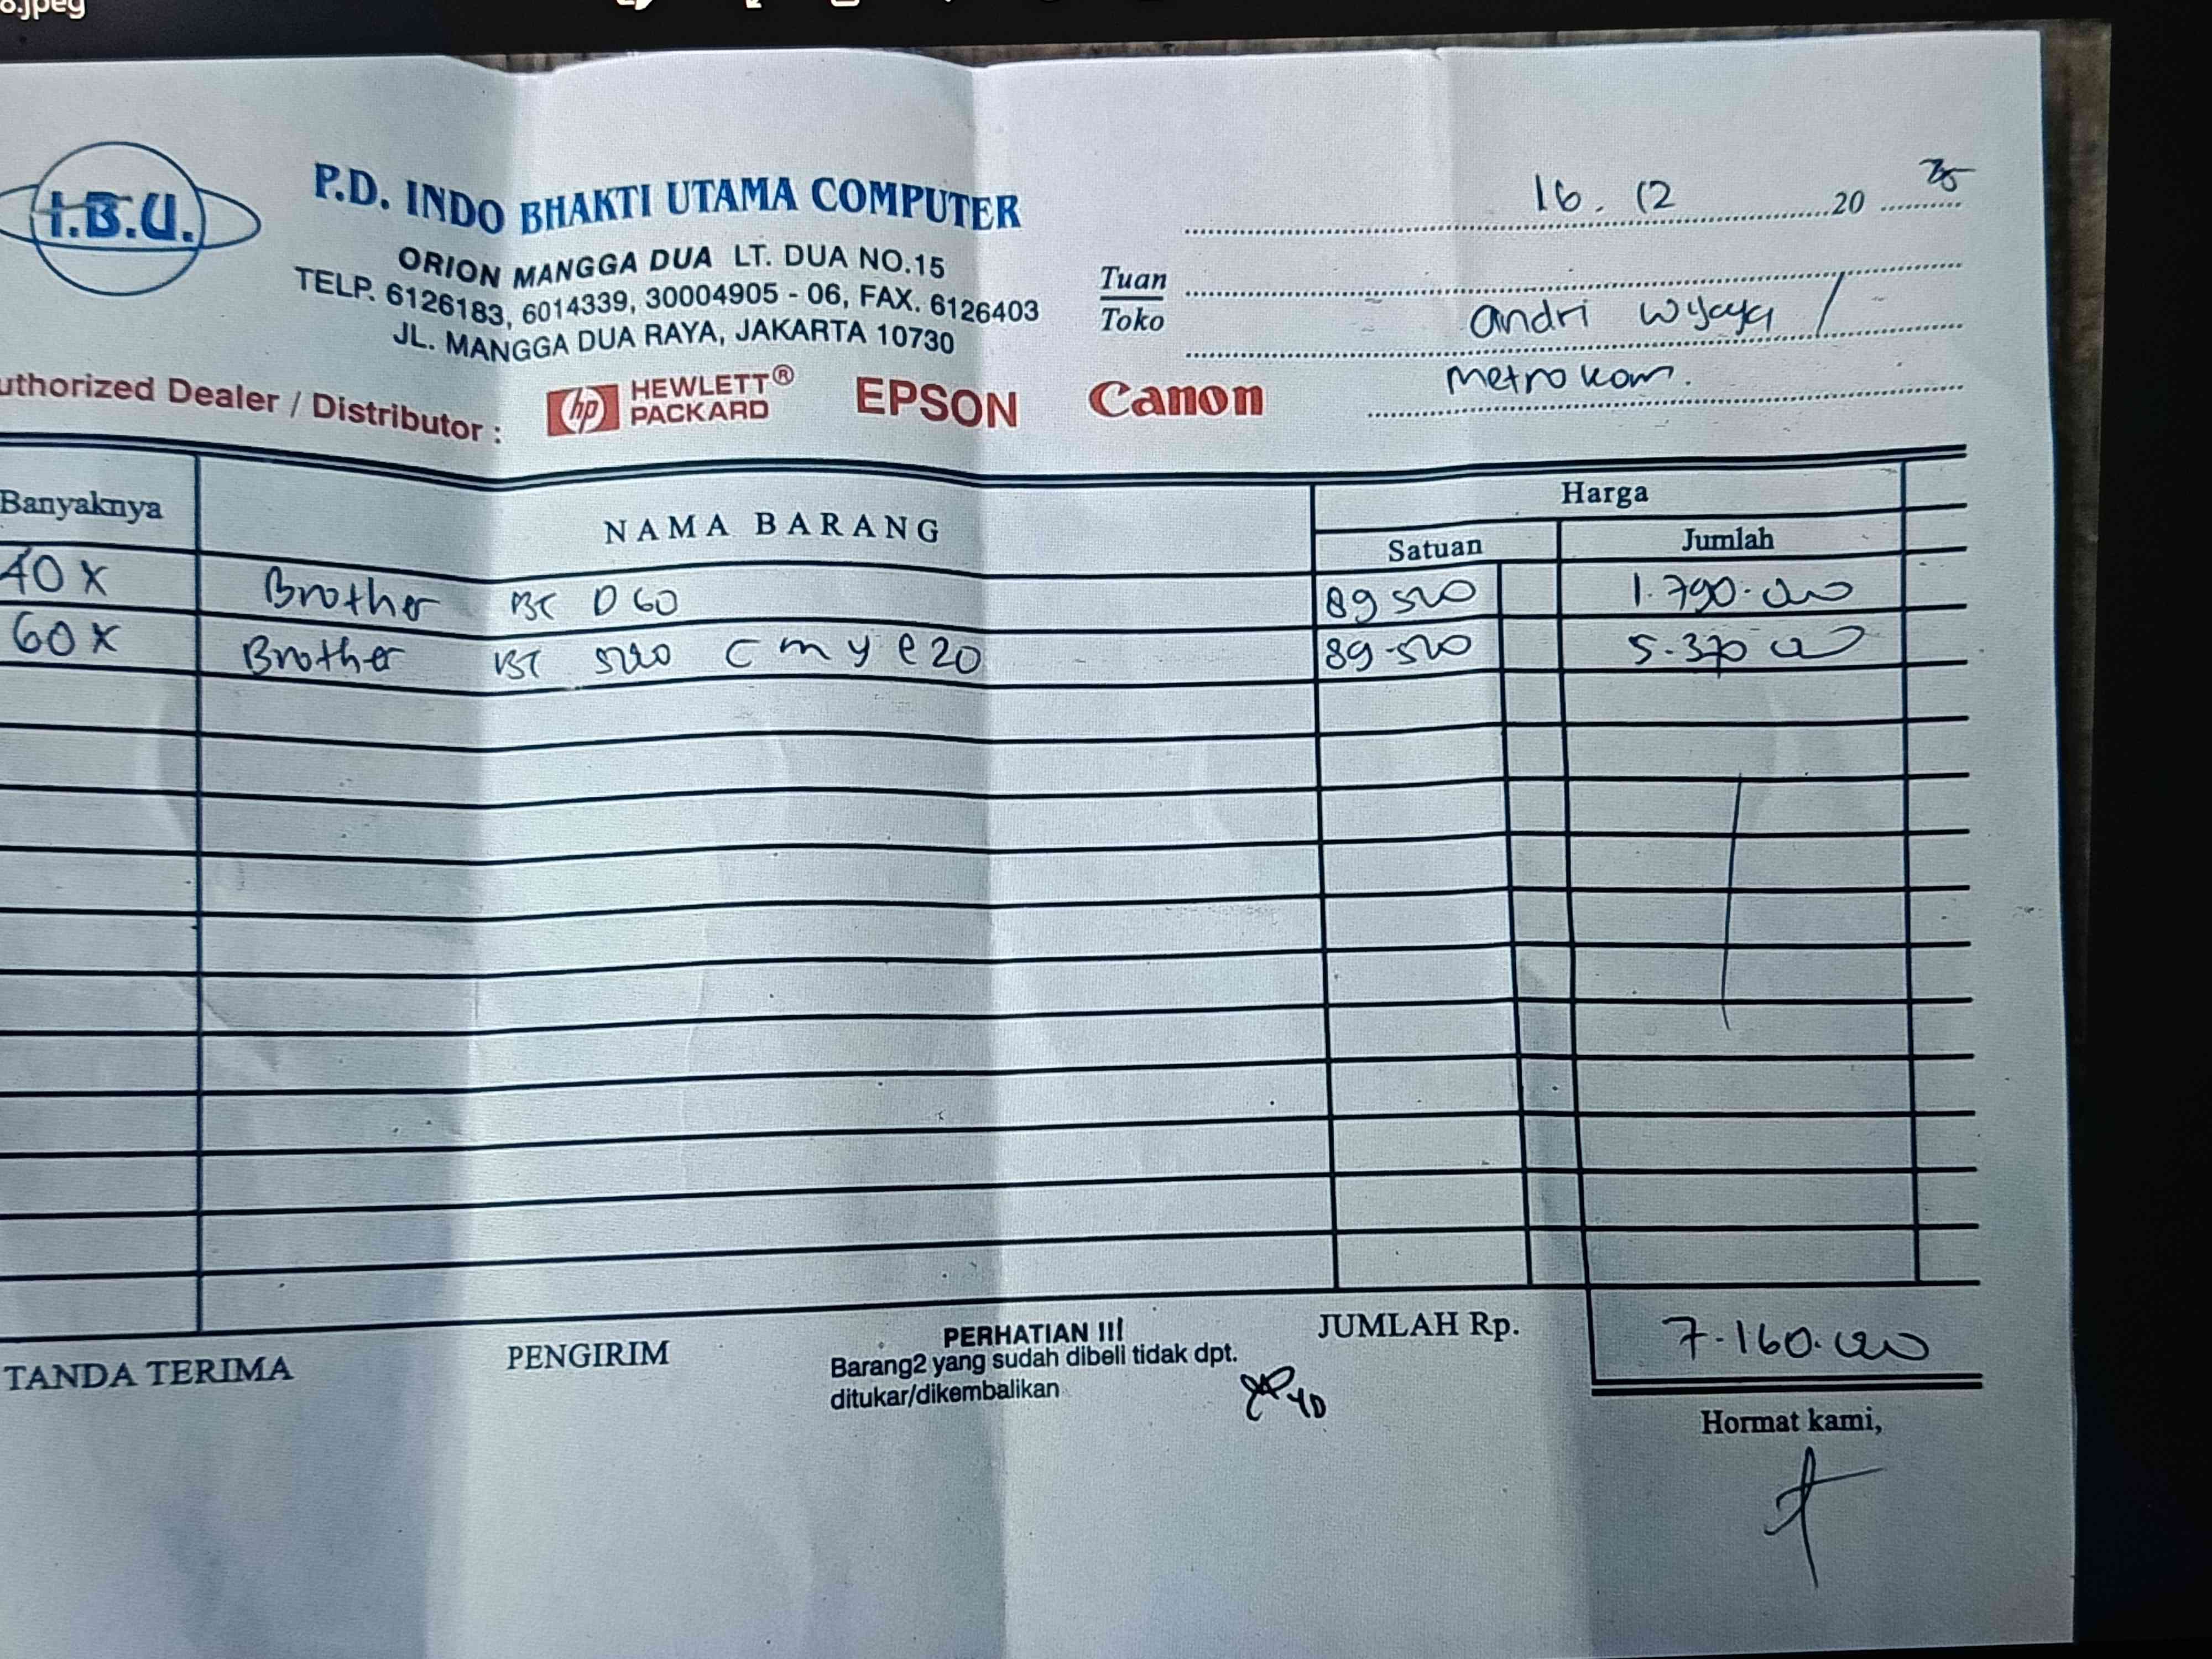 8.jpeg
I.B.U.
P.D. INDO BHAKTI UTAMA COMPUTER
ORION MANGGA DUA LT. DUA NO.15
TELP. 6126183, 6014339, 30004905 - 06, FAX. 6126403
JL. MANGGA DUA RAYA, JAKARTA 10730
uthorized Dealer / Distributor :
hp HEWLETT® PACKARD EPSON Canon
16. 12 20 25
Tuan
Toko
andri wijaya /
metrokom.
Banyaknya NAMA BARANG Harga
Satuan Jumlah
40 x Brother BT D60 89 500 1.790.000
60 x Brother BT 5000 C m y @ 20 89.500 5.370 000
TANDA TERIMA
PENGIRIM
PERHATIAN !!!
Barang2 yang sudah dibeli tidak dpt.
ditukar/dikembalikan
JUMLAH Rp. 7.160.000
Hormat kami,